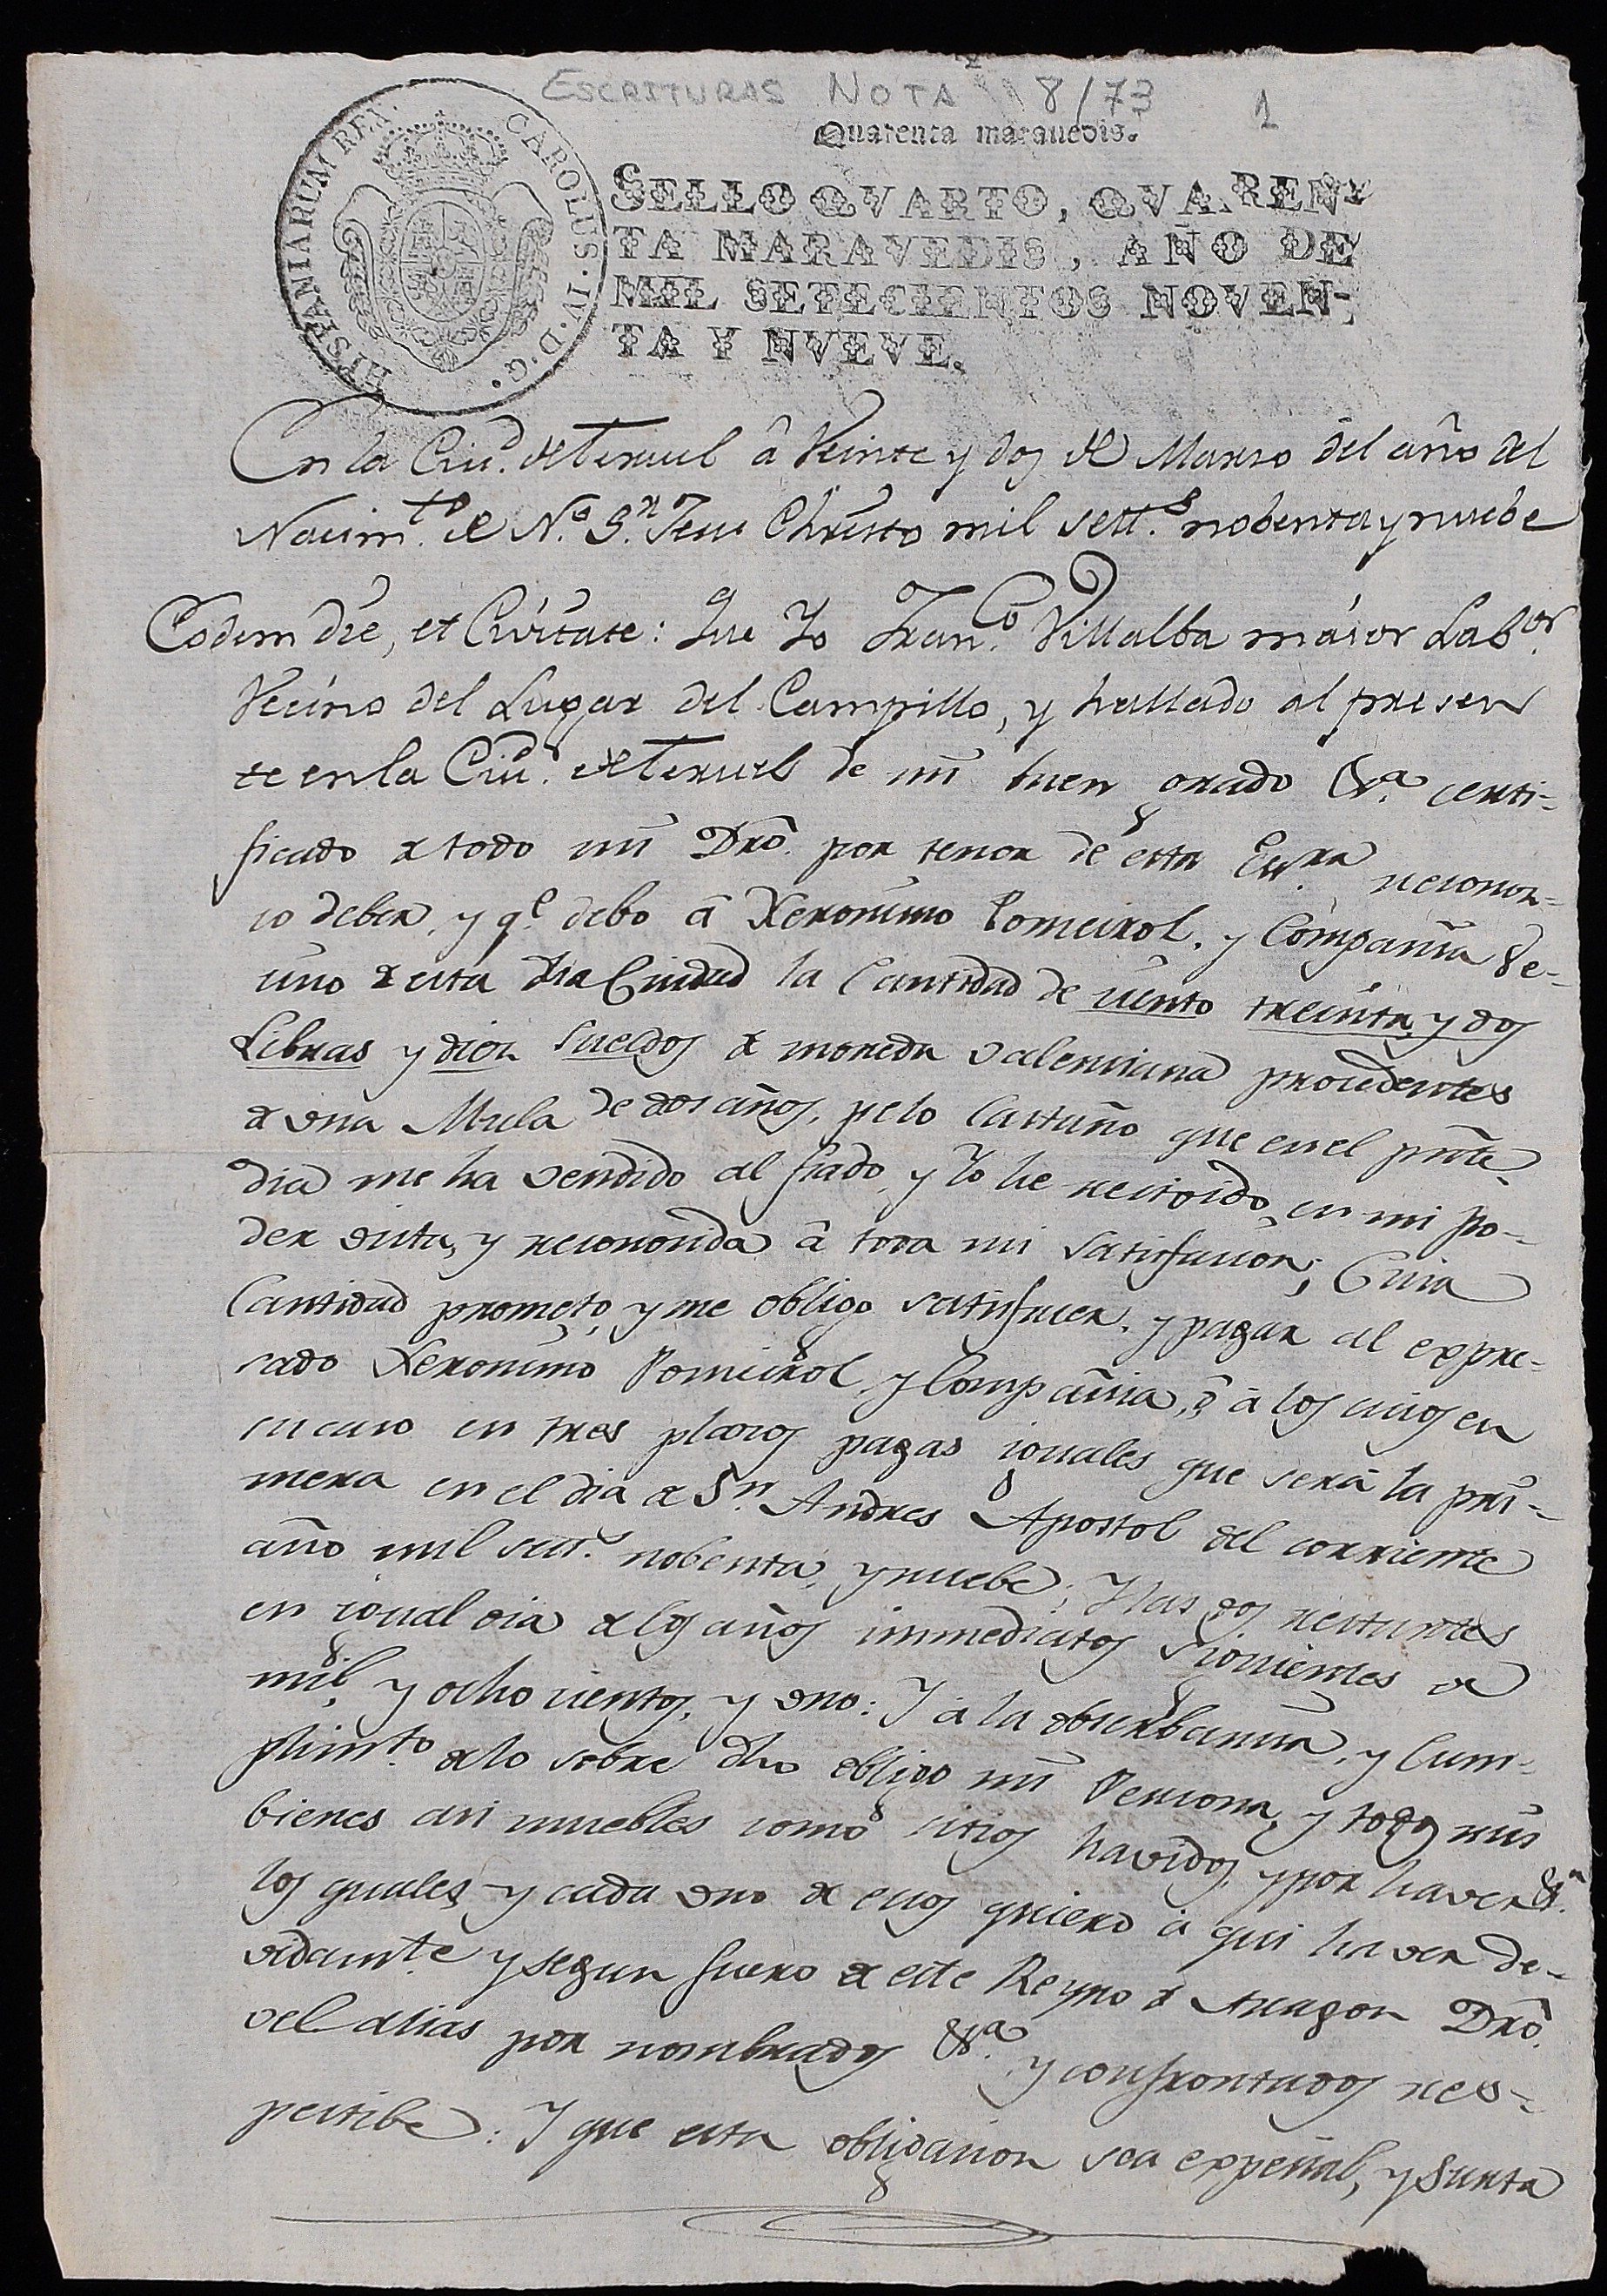 ESCRITURAS NOTA 8/73 1
Quarenta maravedis.
HISPANIARUM REX. CAROLUS. IV. D. G.
SELLO QVARTO, QVAREN-
TA MARAVEDIS, AÑO DE
MIL SETECIENTOS NOVEN-
TA Y NVEVE.
En la Ciud. de Teruel â Veinte y dos de Marzo del año del
Nacimto. de No. Sr. Jesu Christo mil setts. nobenta y nuebe
Eodem die, et Civitate: Que Yo Franco. Villalba maior Labor.
Vecino del Lugar del Campillo, y hallado al presen
te en la Ciud. de Teruel de mi buen grado &a. certi-
ficado de todo mi Dro. por tenor de esta Essra reconoz-
co deber, y qe. debo â Xeronimo Pomeirol, y Compañia Ve-
cino de esta dha Ciudad la Cantidad de ciento treinta y dos
Libras y diez sueldos de moneda valenciana procedentes
de una Mula de dos años, pelo Castaño que en el pnte
dia me ha vendido al fiado, y Yo he recivido, en mi po-
der vista, y reconocida â toda mi satisfacion; Cuia
Cantidad prometo, y me obligo satisfacer, y pagar al expre-
sado Xeronimo Pomeirol, y Compañia, ô â los suios en
su caso en tres plazos pagas iguales que será la pri-
mera en el dia de Sn. Andres Apostol del corriente
año mil sets. nobenta, y nuebe; Y las dos restantes
en igual dia de los años immediatos siguientes de
mil, y ocho cientos, y uno: Y â la obserbancia, y Cum-
plimto. de lo sobre dho obligo mi Persona, y todos mis
bienes asi muebles como sitios havidos, y por haver &a.
los quales y cada uno de ellos quiero â qui haver de-
vidamte. y segun fuero de este Reyno de Aragon Dro.
vel alias por nombrados &a. y confrontados res-
pectibe: Y que esta obligacion sea expecial, y surta